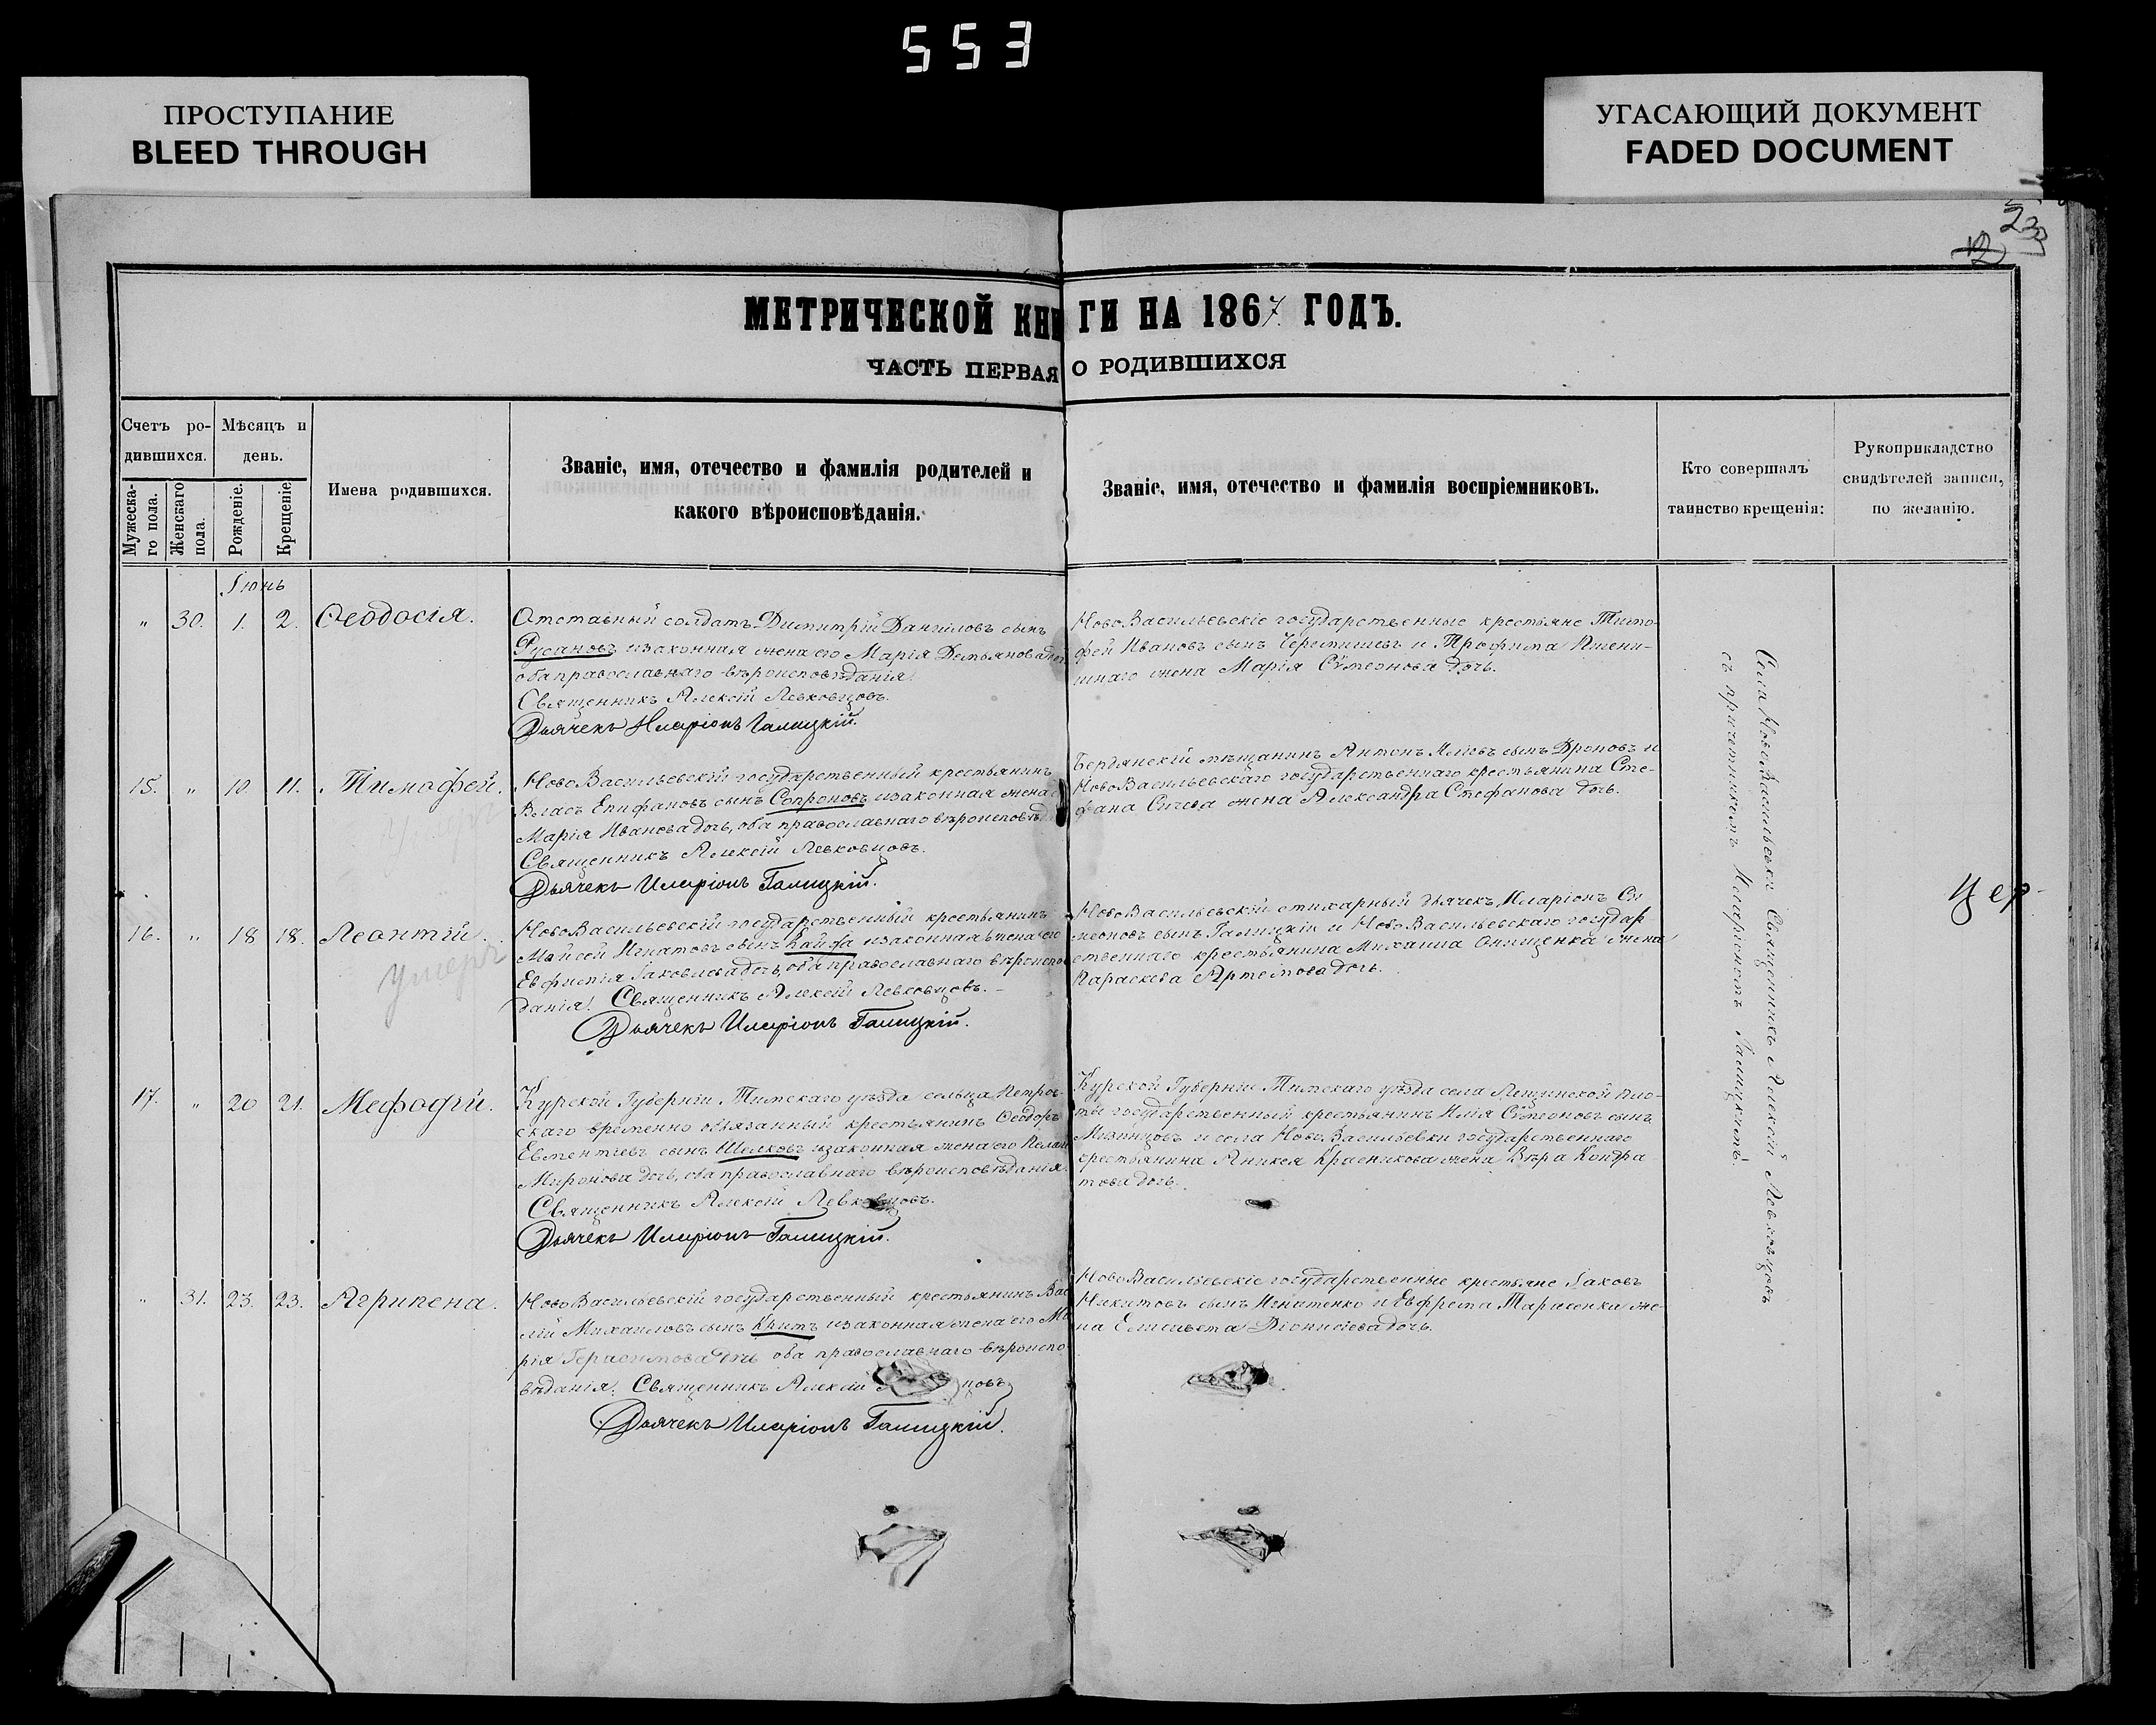 553
ПРОСТУПАНИЕ
BLEED THROUGH
УГАСАЮЩИЙ ДОКУМЕНТ
FADED DOCUMENT
23
12
МЕТРИЧЕСКОЙ КНИГИ НА 1867 ГОДЪ.
ЧАСТЬ ПЕРВАЯ О РОДИВШИХСЯ
Счетъ ро-
дившихся.
Мужеска-
го пола.
Женскаго
пола.
Мѣсяцъ и
день.
Рожденіе.
Крещеніе
Имена родившихся.
Званіе, имя, отечество и фамилія родителей и
какого вѣроисповѣданія.
Званіе, имя, отечество и фамилія воспріемниковъ.
Кто совершалъ
таинство крещенія:
Рукоприкладство
свидѣтелей записи,
по желанію.
Іюнь
" 30. 1. 2. Ѳеодосія.
Отставный солдатъ Димитрій Даніиловъ сынъ
Русановъ изаконная жена его Марія Демьянова дочь
оба православнаго вѣроисповѣданія.
Священникъ Алексій Левковцовъ.
Дьячекъ Иларіонъ Галицкій.
НовоВасильевскіе государственные крестьяне Тимо-
фей Ивановъ сынъ и Трофима Пшени-
шнаго жена Марія Сѵмеонова дочь.
15. " 10. 11. Тимофей.
НовоВасильевскій государственный крестьянинъ
Власъ Епифановъ сынъ Сопроновъ изаконная жена
Марія Иванова дочь, оба православнаго вѣроисповѣд
Священникъ Алексій Левковцовъ.
Дьячекъ Иларіонъ Галицкій.
Бердянскій мѣщанинъ Антонъ сынъ Дроновъ и
НовоВасильевскаго государственнаго крестьянина Сте-
фана Сичева жена Александра Стефанова дочь.
16. " 18 18. Леонтій.
умеръ
НовоВасильевскій государственный крестьянинъ
Мойсей Игнатовъ сынъ Кайфа изаконная жена его
Евфимія Іаковлева дочь, оба православнаго вѣроиспо
данія. Священникъ Алексій Левковцовъ.
Дьячекъ Иларіонъ Галицкій.
НовоВасильевскій стихарный дьячекъ Иларіонъ Сѵ
меоновъ сынъ Галицкій и НовоВасильевскаго государ-
ственнаго крестьянина Михаила Онищенка жена
Параскева Артемова дочь.
Цер-
17. " 20 21. Мефодій.
Курской Губерніи Тимскаго уѣзда сельца Петров-
скаго временно обязанный крестьянинъ Ѳеодоръ
Евментіевъ сынъ Шелковъ изаконная жена его Пелаг
Миронова дочь, оба православнаго вѣроисповѣданія.
Священникъ Алексій Левковцовъ.
Дьячекъ Иларіонъ Галицкій.
Курской Губерніи Тимскаго уѣзда села Лещинской Пло-
ты государственный крестьянинъ Илія Сѵмеоновъ сынъ
Мизинцовъ и села НовоВасильевки государственнаго
крестьянина Аникея Красникова жена Вѣра Кондра
това дочь.
" 31. 23. 23. Агрипена.
НовоВасильевскій государственный крестьянинъ Вас
лій Михаиловъ сынъ Критъ изаконная жена его Ма
рія Герасимова дочь оба православнаго вѣроиспо
вѣданія. Священникъ Алексій цовъ
Дьячекъ Иларіонъ Галицкій.
НовоВасильевскіе государственные крестьяне Іаковъ
Никитовъ сынъ Игнатенко и Евфрема Тарасенка же-
на Елисавета Діонисіева дочь.
Села НовоВасильевки Священникъ Алексій Левковцовъ
съ причетникомъ Иларіономъ Галицкимъ.